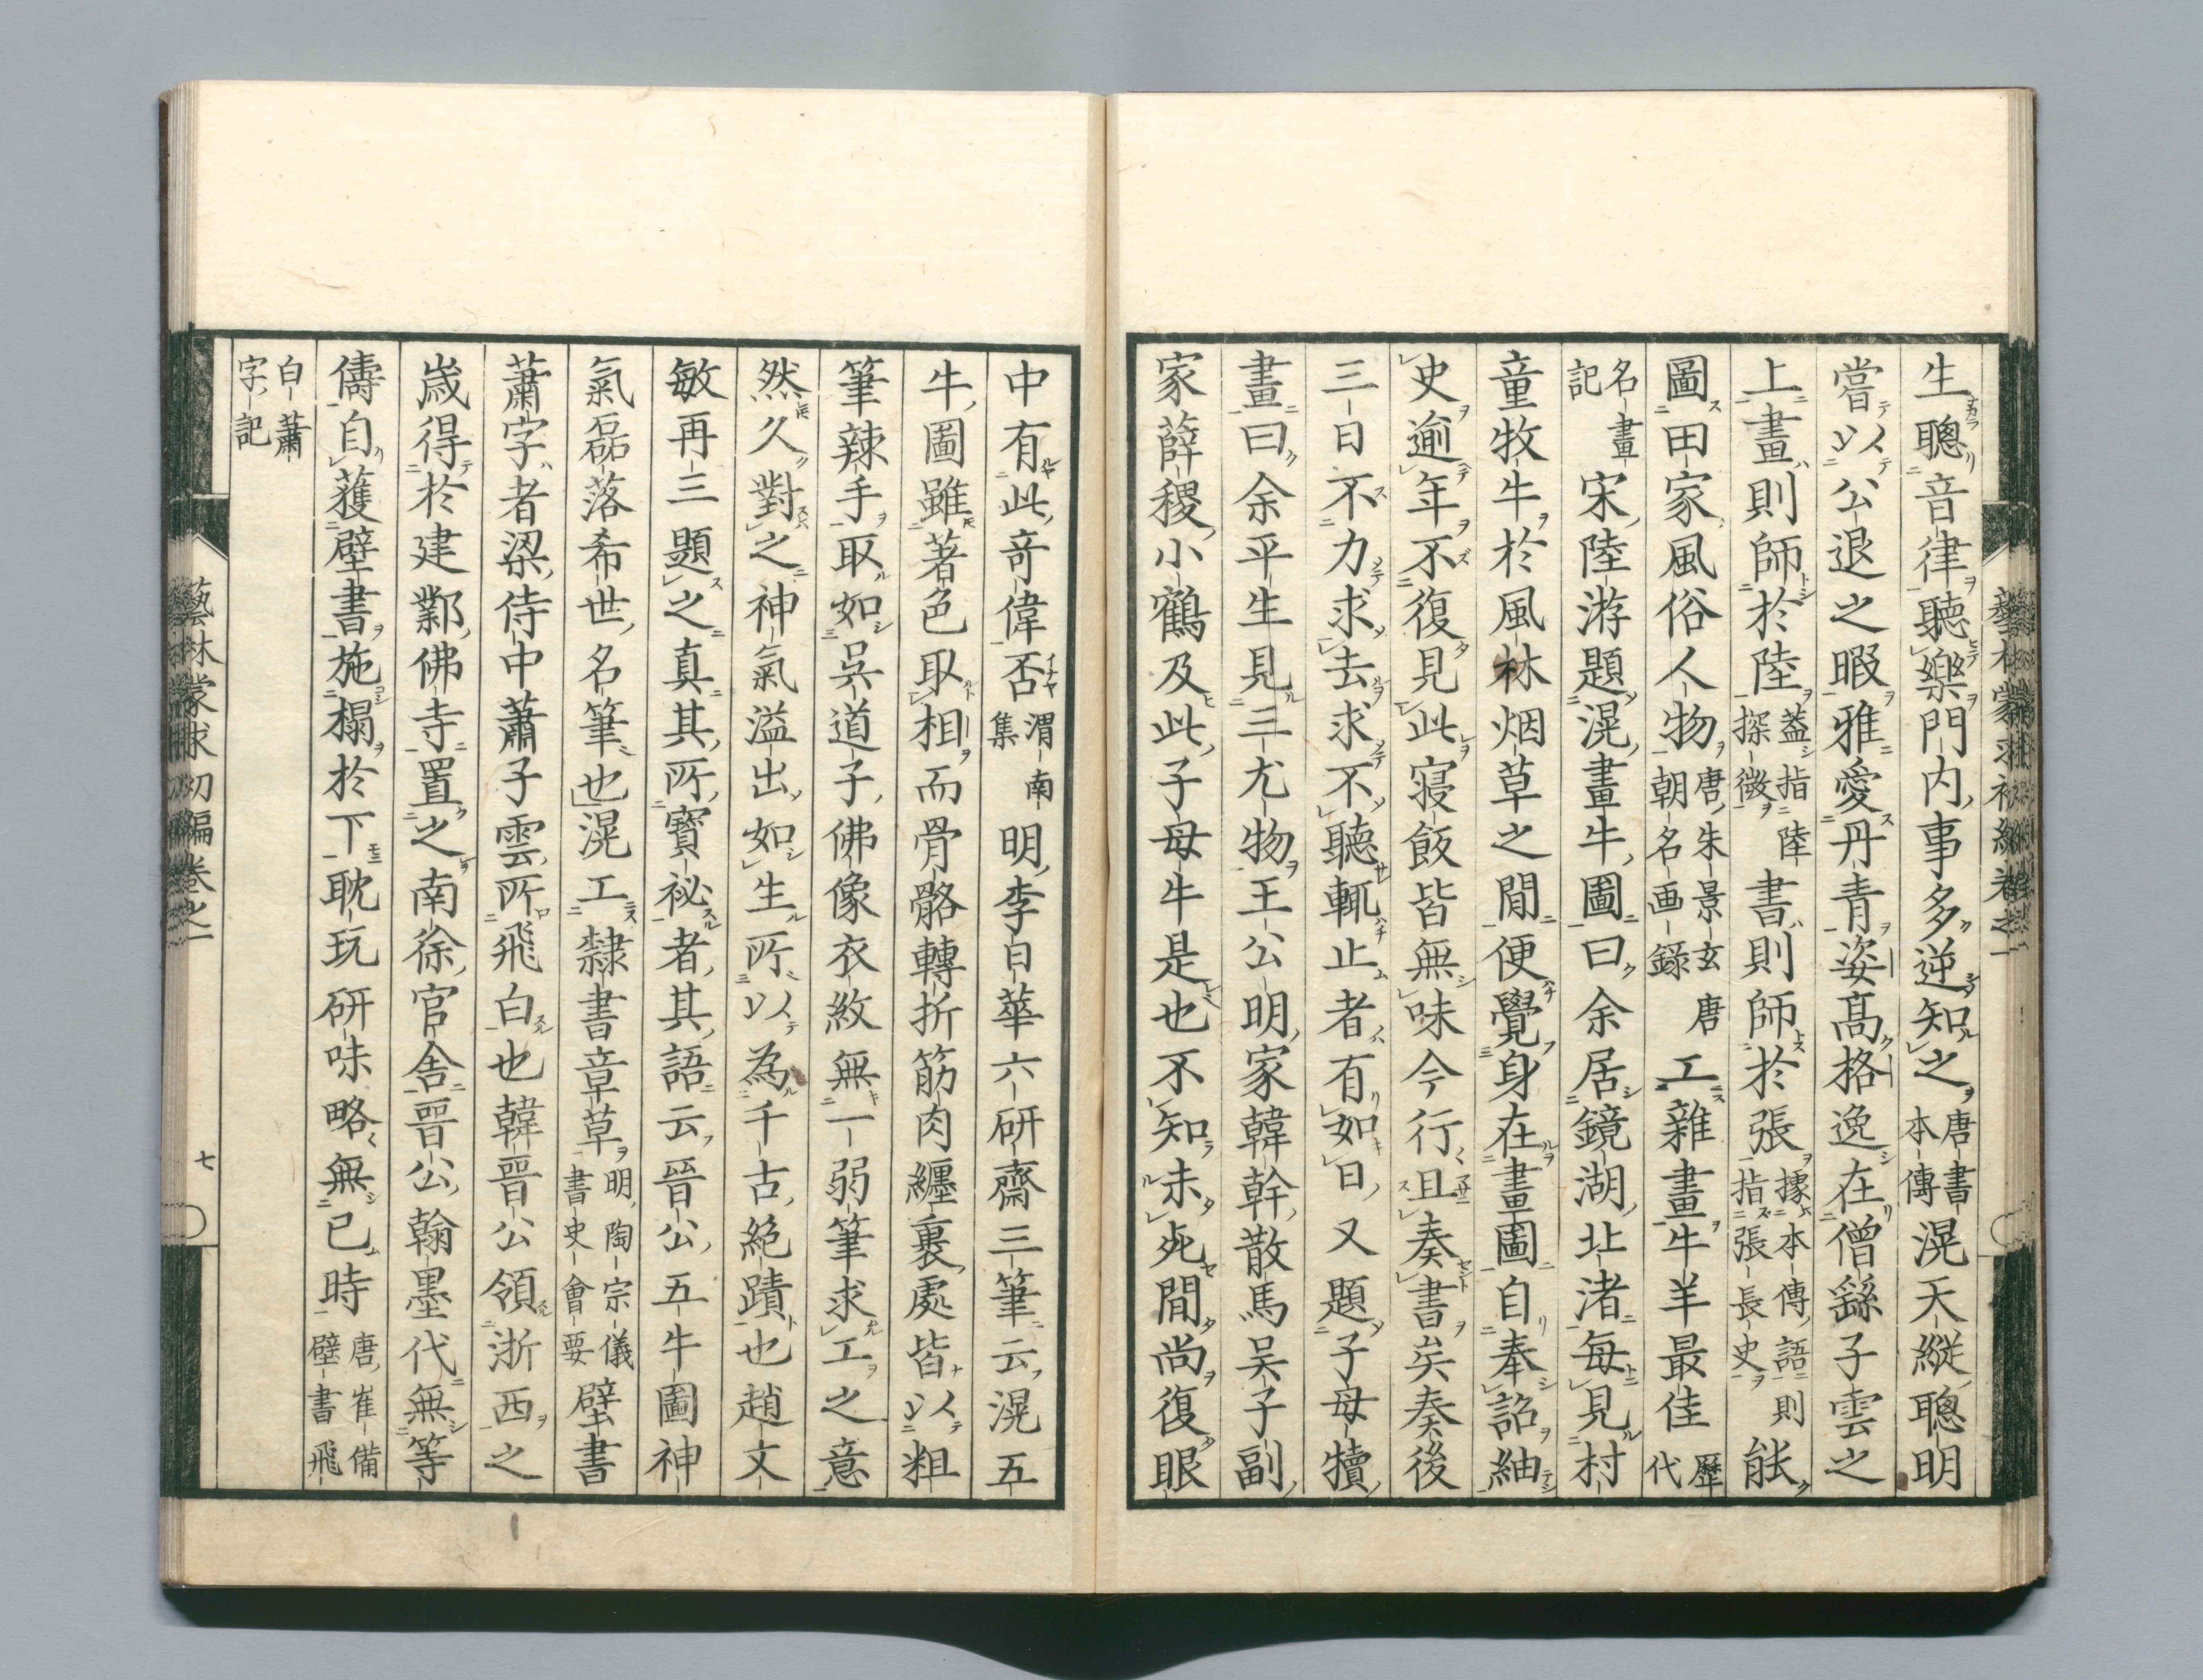 生聰音律聽樂門内事多逆知之唐書本傳滉天縱聰明
嘗以公退之暇雅愛丹青姿高格逸在僧繇子雲之
上畫則師於陸蓋指陸探微書則師於張據本傳語則指張長史能
圖田家風俗人物唐朱景玄唐朝名画錄工雜畫牛羊最佳歷代
名畫記宋陸游題滉畫牛圖曰余居鏡湖北渚每見村
童牧牛於風林烟草之間便覺身在畫圖自奉詔紬
史逾年不復見此寢飯皆無味今行且奏書矣奏後
三日不力求去求不聽輒止者有如日又題子母犢
畫曰余平生見三尤物王公明家韓幹散馬吳子副
家薛稷小鶴及此子母牛是也不知未死間尚復眼
中有此奇偉否渭南集明李日華六研齋三筆云滉五
牛圖雖著色取相而骨骼轉折筋肉纏裹處皆以粗
筆辣手取如吳道子佛像衣紋無一弱筆求工之意
然久對之神氣溢出如生所以為千古絕蹟也趙文
敏再三題之真其所寶祕者其語云晉公五牛圖神
氣磊落希世名筆也滉工隸書章草明陶宗儀書史會要壁書
蕭字者梁侍中蕭子雲所飛白也韓晉公領浙西之
歳得於建鄴佛寺置之南徐官舍晉公翰墨代無等
儔自獲壁書施榻於下耽玩研味略無已時唐崔備壁書飛
白蕭字記
藝林蒙求初編卷之一
七